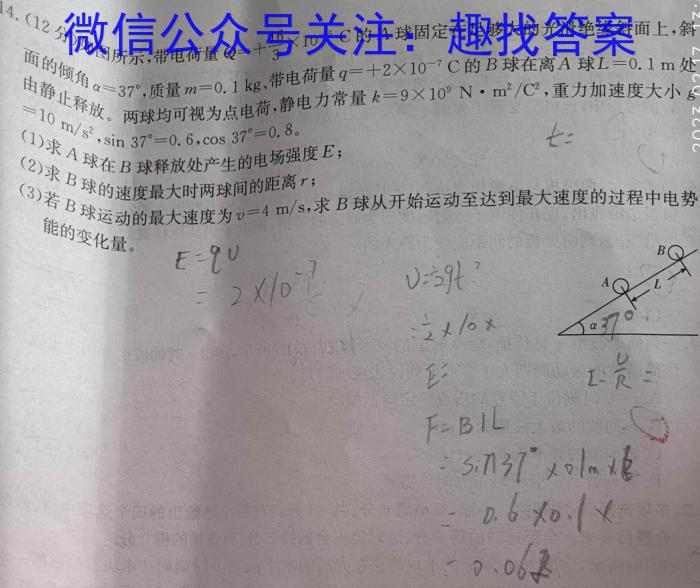 微信公众号关注：趣找答案
14.(12分)如图所示,带电荷量Q=+16/3×10 C的A球固定在足够大的光滑绝缘斜面上,斜
面的倾角α=37°,质量m=0.1 kg、带电荷量q=+2×10⁻⁷ C的B球在离A球L=0.1 m处
由静止释放。两球均可视为点电荷,静电力常量k=9×10⁹ N·m²/C²,重力加速度大小g
=10 m/s²,sin 37°=0.6,cos 37°=0.8。
(1)求A球在B球释放处产生的电场强度E;
(2)求B球的速度最大时两球间的距离r;
(3)若B球运动的最大速度为v=4 m/s,求B球从开始运动至达到最大速度的过程中电势
能的变化量。
t=
E=qU
= 2×10⁻⁷
U=½gt²
=½×10×
E=
I=U/R=
F=BIL
=sin37°×0.1m×
=0.6×0.1×
=0.06
A
B
L
α 37°